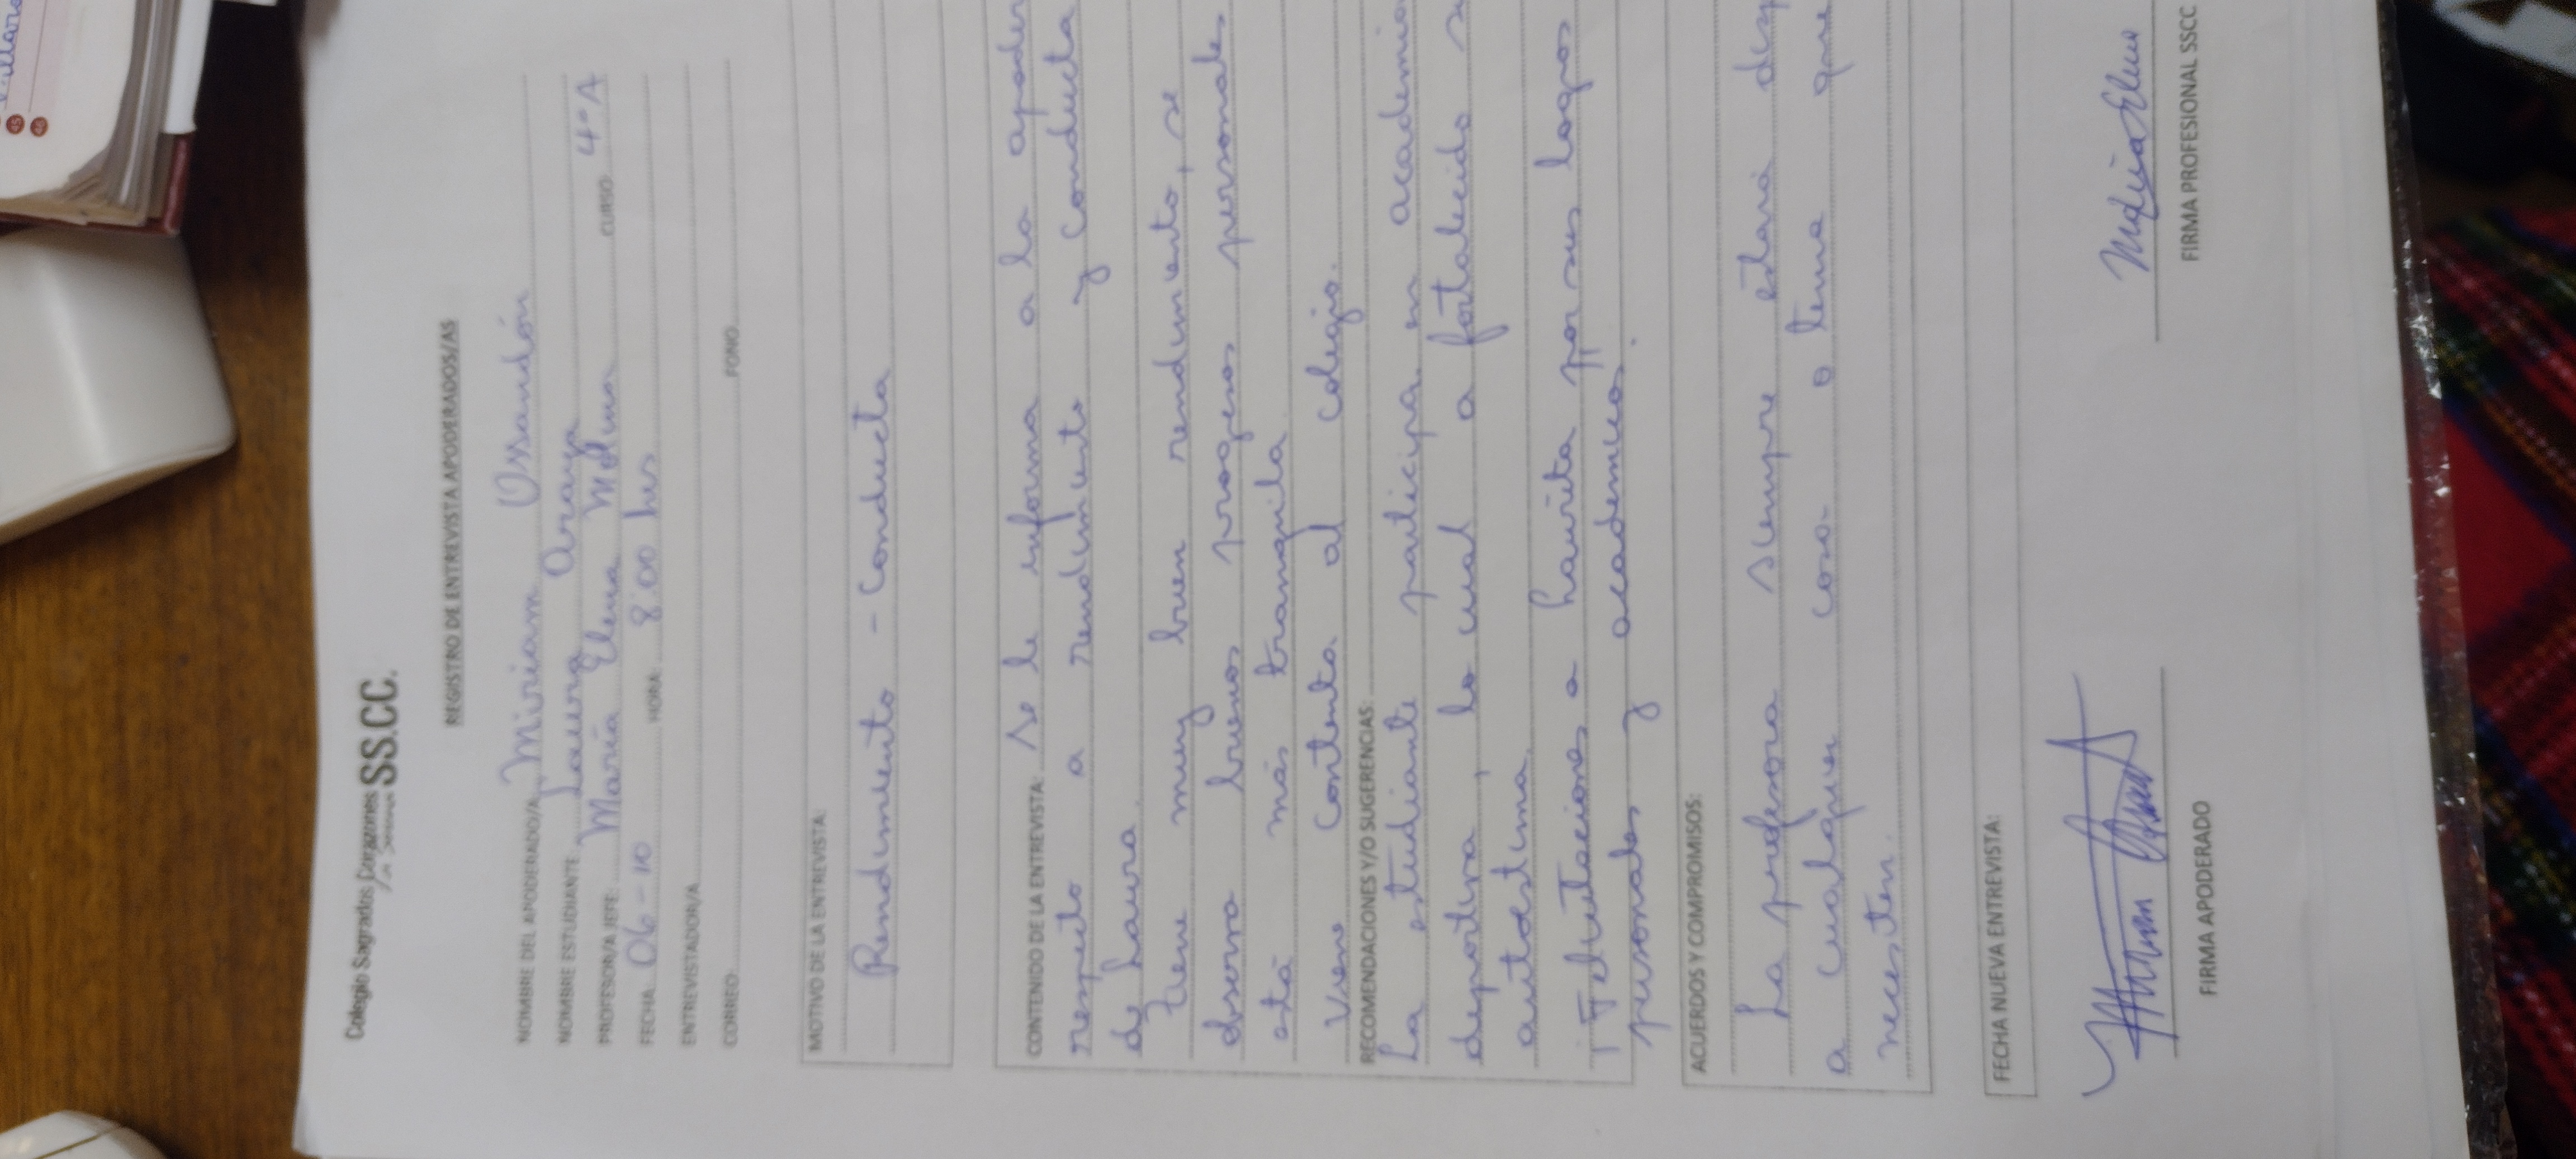 Colegio Sagrados Corazones
SS.CC.
REGISTRO DE ENTREVISTA APODERADOS/AS
NOMBRE DEL APODERADO/A: Miriam Ossandón
NOMBRE ESTUDIANTE: Laura Araya
PROFESOR/A JEFE: María Elena Molina CURSO 4°A
FECHA 06-10 HORA: 8:00 hrs
ENTREVISTADOR/A
CORREO FONO
MOTIVO DE LA ENTREVISTA:
Rendimiento - Conducta
CONTENIDO DE LA ENTREVISTA: Se le informa a la apoder
respecto a rendimiento y conducta
de Laura.
Tiene muy buen rendimiento, se
observa buenos progresos personales
está más tranquila.
Viene contenta al colegio.
RECOMENDACIONES Y/O SUGERENCIAS:
La estudiante participa en academia
deportiva, lo cual a fortalecido su
autoestima.
¡Felicitaciones a Laurita por sus logros
personales y academicos.
ACUERDOS Y COMPROMISOS:
La profesora siempre estará disp
a cualquier cosa o tema que
necesiten.
FECHA NUEVA ENTREVISTA:
FIRMA APODERADO
FIRMA PROFESIONAL SSCC
45
46